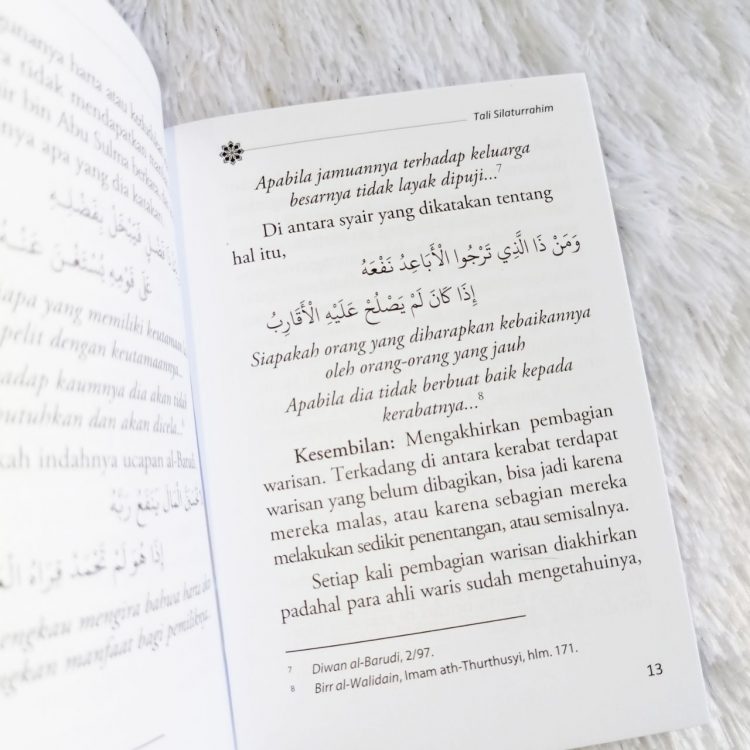 harta atau kebaikan
tidak mendapatkan
bin Abu Sulma
apa yang dia katakan
عَلَى قَوْمِهِ يُسْتَغْنَ عَنْهُ
apa yang memiliki keutamaan
pelit dengan keutamaannya...
kaumnya dia akan tidak
dan akan dicela..."
indahnya ucapan al-Barudi,
الْمَالَ يَنْفَعُ رَبَّهُ
إِذَا هُوَ لَمْ تَحْمَدْ قِرَاهُ
engkau mengira bahwa harta
manfaat bagi pemiliknya
Tali Silaturrahim
Apabila jamuannya terhadap keluarga
besarnya tidak layak dipuji...7
Di antara syair yang dikatakan tentang
hal itu,
وَمَنْ ذَا الَّذِي تَرْجُوا الْأَبَاعِدُ نَفْعَهُ
إِذَا كَانَ لَمْ يَصْلُحْ عَلَيْهِ الْأَقَارِبُ
Siapakah orang yang diharapkan kebaikannya
oleh orang-orang yang jauh
Apabila dia tidak berbuat baik kepada
kerabatnya...8
Kesembilan: Mengakhirkan pembagian
warisan. Terkadang di antara kerabat terdapat
warisan yang belum dibagikan, bisa jadi karena
mereka malas, atau karena sebagian mereka
melakukan sedikit penentangan, atau semisalnya.
Setiap kali pembagian warisan diakhirkan
padahal para ahli waris sudah mengetahuinya,
7 Diwan al-Barudi, 2/97.
8 Birr al-Walidain, Imam ath-Thurthusyi, hlm. 171.
13